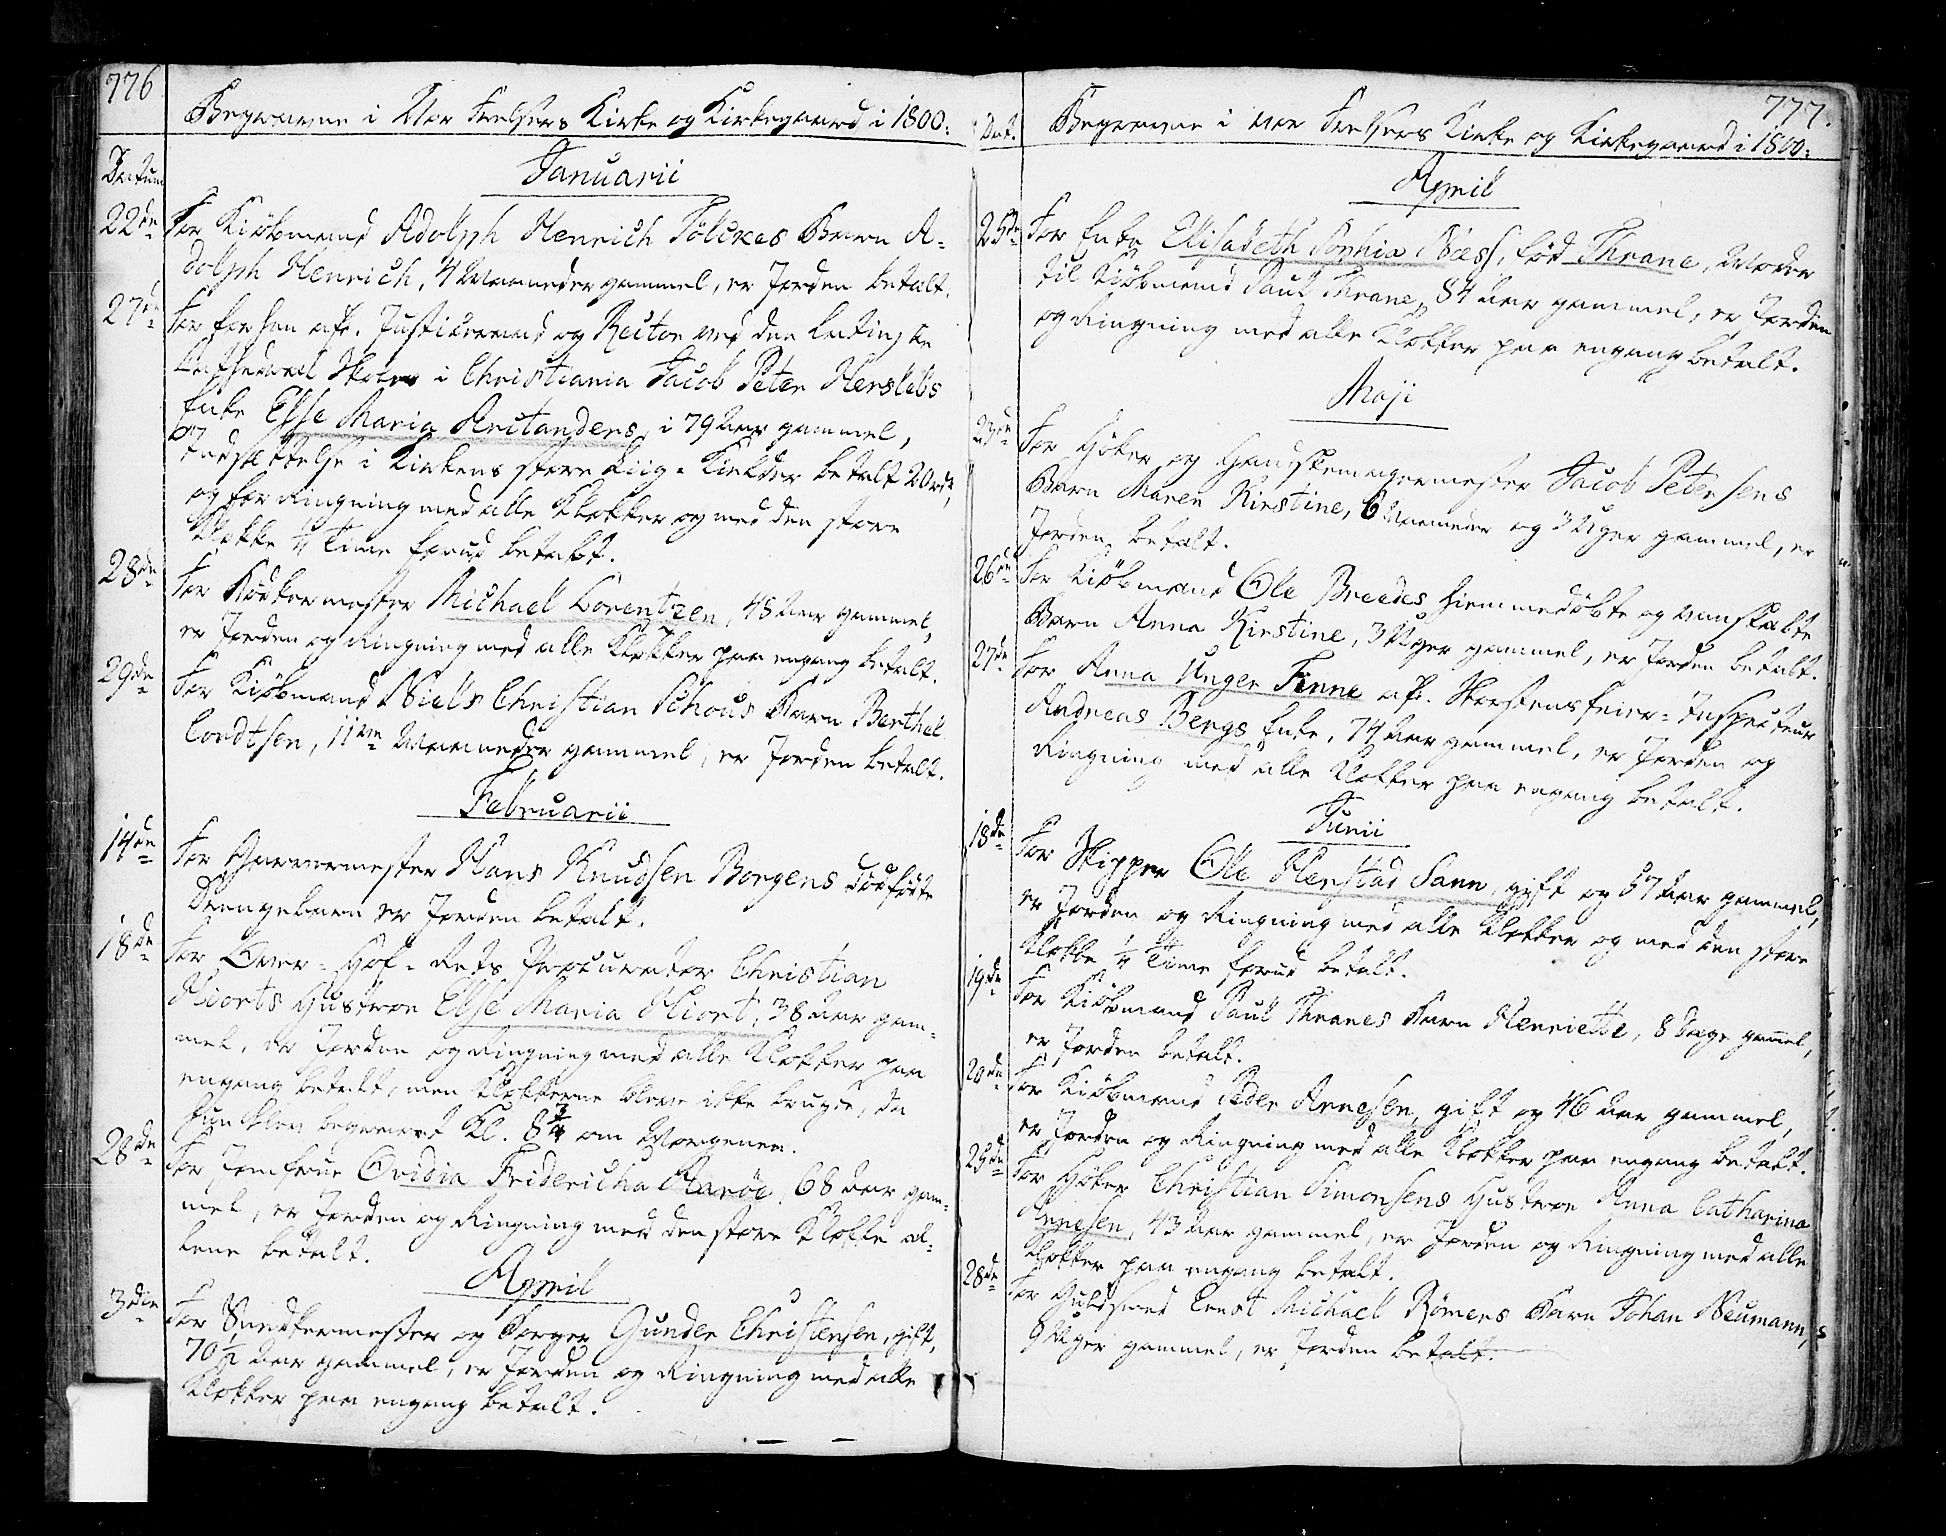 776
Begravne i Vor Frelsers Kirke og Kirkegaard i 1800.
Datum
Januarii
22de For Kiøbmand Adolph Henrich Tölckes Barn A-
dolph Henrich, 4 Maaneder gammel, er Jorden betalt.
27de For forhen afg. Justitsraad og Rector ved den Latinske
Cathedral Skole i Christiania Jacob Peter Herslebs
Enke Else Maria Arctanders, i 79 Aar gammel,
Indsættelse i Kirkens store Liig-Kielder betalt 20 rd,
og for Ringning med alle Klokker og med den store
Klokke 1/4 Time forud betalt.
28de For Bødkermester Michael Lorentzen, 48 Aar gammel,
er Jorden og Ringning med alle Klokker paa engang betalt.
29de For Kiøbmand Niels Christian Schous Barn Barthel
Cordtsen, 11ve Maaneder gammel, er Jorden betalt.
Februarii
14de For Garvermester Hans Knudsen Borgens dødfødte
Drengebarn er Jorden betalt.
18de For Over-Hof-Rets Procurator Christian
Hiorts Hustroe Else Maria Hiort, 38 Aar gam-
mel, er Jorden og Ringning med alle Klokker paa
engang betalt, men Klokkerne bleve ikke brugte, da
hun blev begravet Kl. 8 3/4 om Morgenen.
28de For Jomfrue Ovidia Fridericha Harôe, 68 Aar gam-
mel, er Jorden og Ringning med den store Klokke al-
lene betalt.
April
3die For Snedkermester og Borger Gunder Christensen, gift,
70 1/2 Aar gammel, er Jorden og Ringning med alle
Klokker paa engang betalt.
777.
Dat. Begravne i Vor Frelsers Kirke og Kirkegaard i 1800.
April
25de For Enke Elisabeth Sophia Næss, fød Thrane, Moder
til Kiøbmand Paul Thrane, 84 Aar gammel, er Jorden
og Ringning med alle Klokker paa engang betalt.
Maji
23de For Høker og Handskemagermester Jacob Petersens
Barn Maren Kirstine, 6 Maaneder og 3 Uger gammel, er
Jorden betalt.
26de For Kiøbmand Ole Breedes hiemmedøbte og vanskabte
Barn Anna Kirstine, 3 Uger gammel, er Jorden betalt.
27de For Anna Unger Finne afg. Skorsteensfeier-Inspecteur
Andreas Bergs Enke, 74 Aar gammel, er Jorden og
Ringning med alle Klokker paa engang betalt.
Junii
18de For Skipper Ole Henstad Sann, gift og 57 Aar gammel,
er Jorden og Ringning med alle Klokker og med den store
Klokke 1/4 Time forud betalt.
19de For Kiøbmand Paul Thranes Barn Henriette, 8 Dage gam̅el,
er Jorden betalt.
20de For Kiøbmand Peder Arnesen, gift og 46 Aar gammel,
er Jorden og Ringning med alle Klokker paa engang betalt.
25de For Høker Christian Simonsens Hustroe Anna Catharina
Arnesen, 43 Aar gammel, er Jorden og Ringning med alle
Klokker paa engang betalt.
28de For Guldsmed Ernst Michael Römers Barn Johan Neumann,
9 Uger gammel, er Jorden betalt.